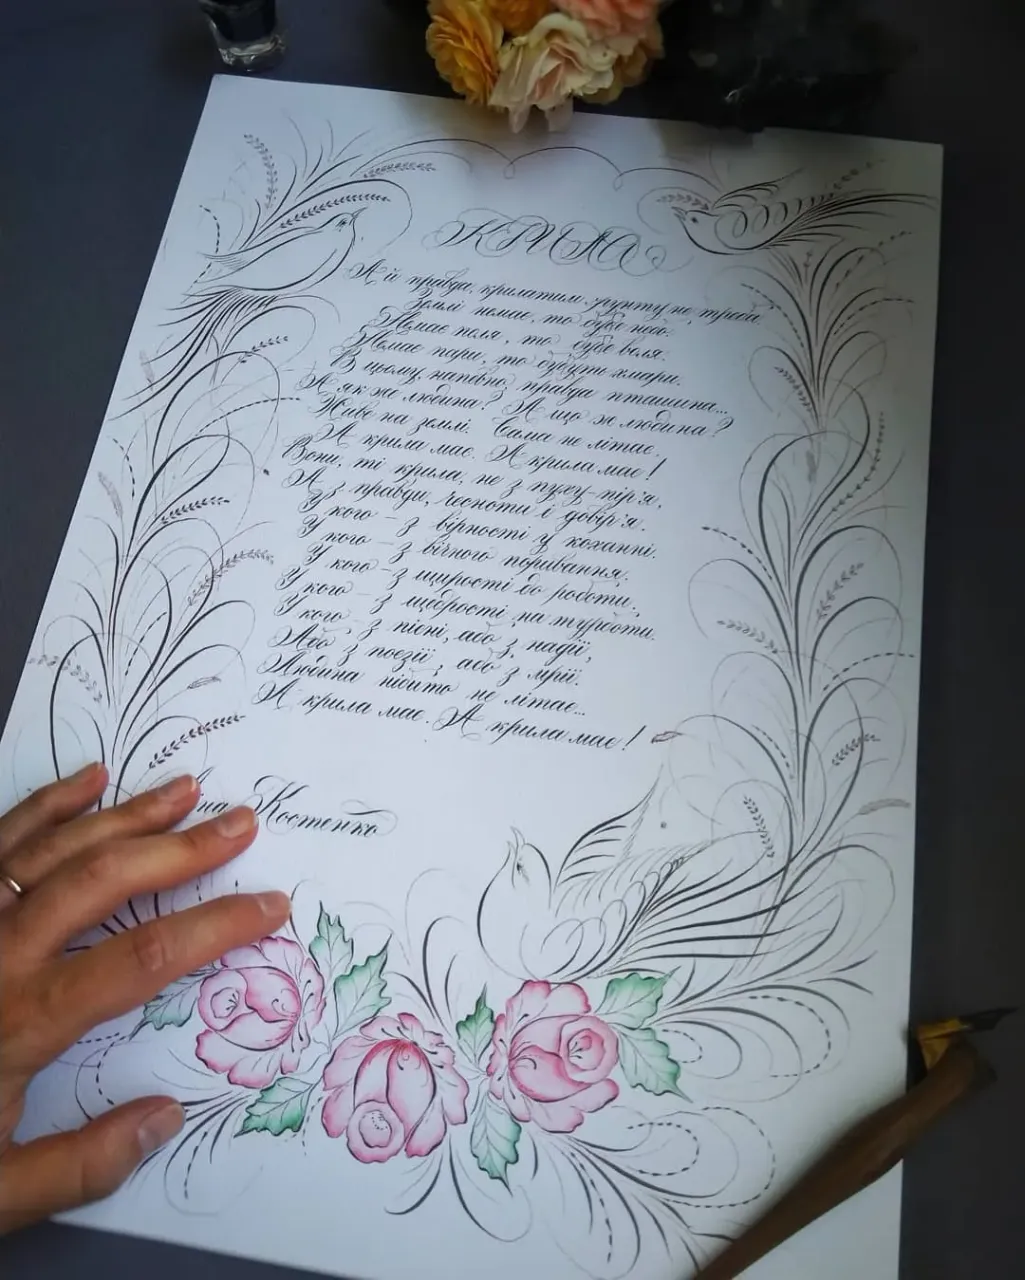 КРИЛА
А й правда, крилатим ґрунту не треба.
Землі немає, то буде небо.
Немає поля, то буде воля.
Немає пари, то будуть хмари.
В цьому, напевно, правда пташина...
А як же людина? А що ж людина?
Живе на землі. Сама не літає.
А крила має. А крила має!
Вони, ті крила, не з пуху-пір'я,
А з правди, чесноти і довір'я.
У кого – з вірності у коханні.
У кого – з вічного поривання.
У кого – з щирості до роботи.
У кого – з щедрості на турботи.
У кого – з пісні, або з надії,
Або з поезії, або з мрії.
Людина нібито не літає...
А крила має. А крила має!
Костенко